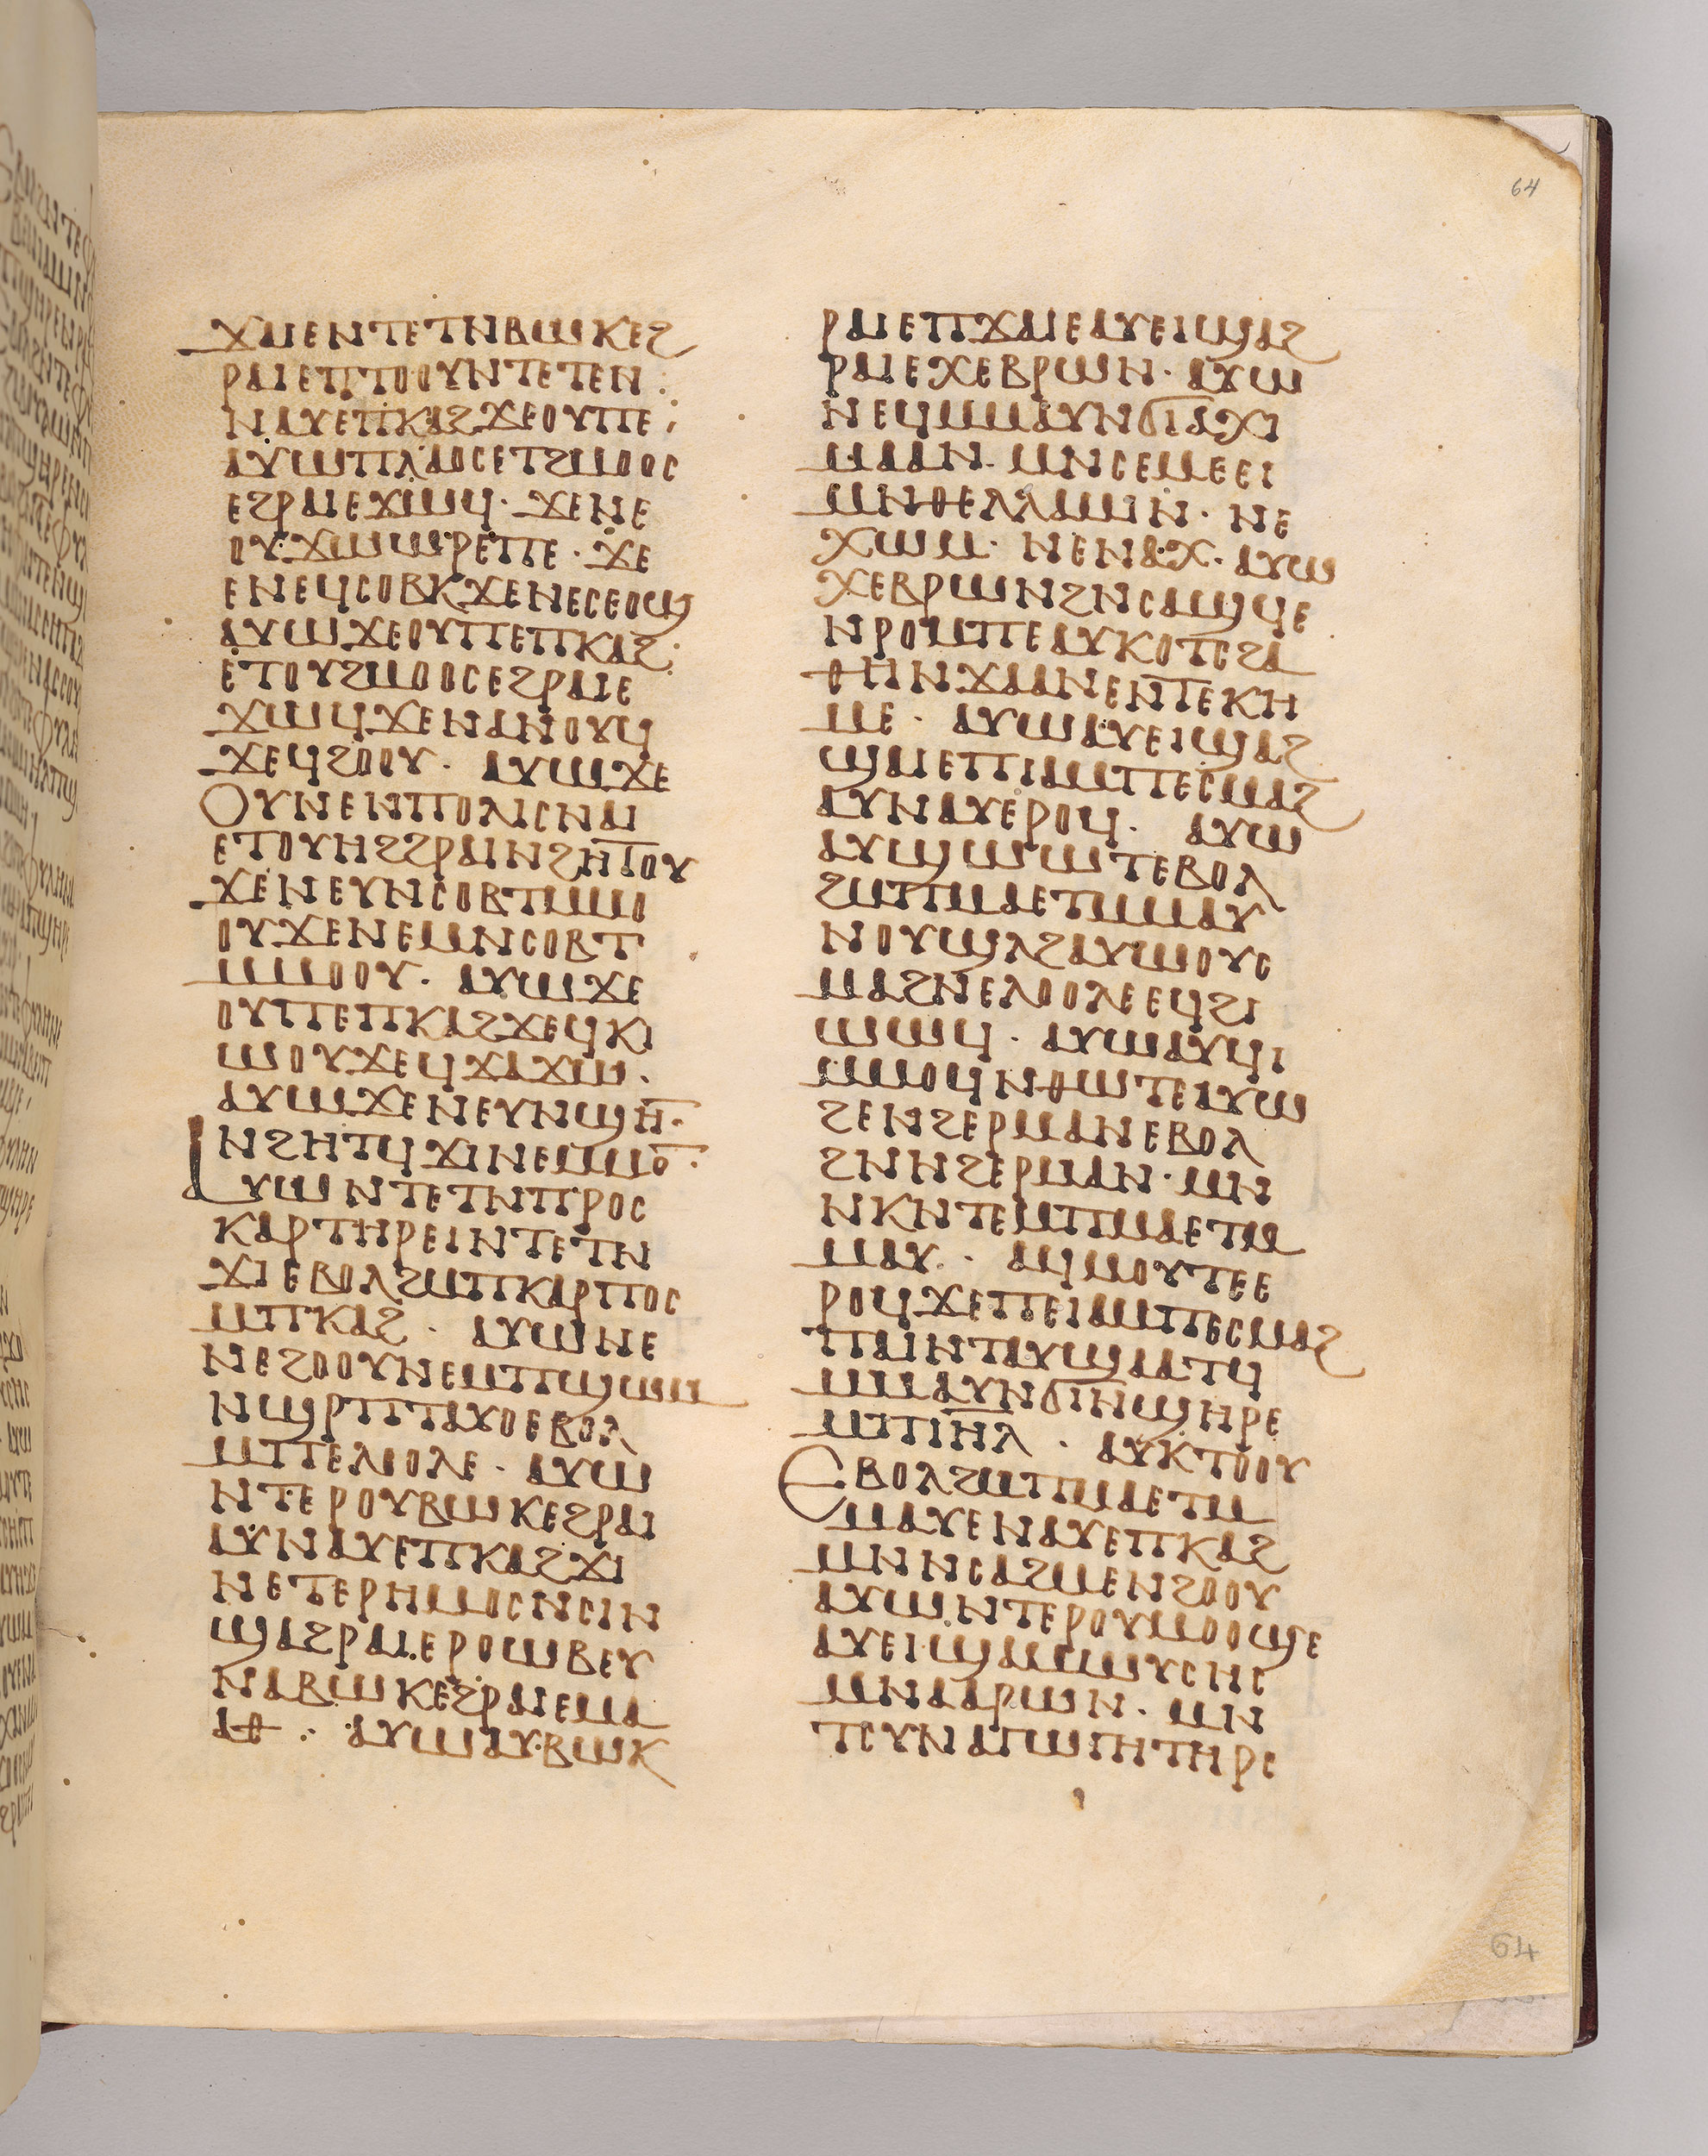 64
ϫⲁⲓⲉⲛⲧⲉⲧⲛⲃⲱⲕⲉϩ
ⲣⲁⲓⲉⲡⲧⲟⲟⲩⲛⲧⲉⲧⲉⲛ·
ⲛⲁⲩⲉⲡⲕⲁϩϫⲉⲟⲩⲡⲉ·
ⲁⲩⲱⲡⲗⲁⲟⲥⲉⲧϩⲙⲟⲟⲥ
ⲉϩⲣⲁⲓⲉϫⲱϥ· ϫⲉⲛⲉ
ⲟⲩϫⲱⲱⲣⲉⲡⲉ· ϫⲉ
ⲉⲛⲉϥⲥⲟⲃⲕϫⲉⲛⲉⲥⲉⲟϣ
ⲁⲩⲱϫⲉⲟⲩⲡⲉⲡⲕⲁϩ·
ⲉⲧⲟⲩϩⲙⲟⲟⲥⲉϩⲣⲁⲓⲉ
ϫⲱϥϫⲉⲛⲁⲛⲟⲩϥ
ϫⲉϥϩⲟⲟⲩ· ⲁⲩⲱϫⲉ
ⲟⲩⲛⲉⲙⲡⲟⲗⲓⲥⲛⲁⲓ
ⲉⲧⲟⲩⲏϩϩⲣⲁⲓⲛϩⲏⲧⲟⲩ
ϫⲉⲛⲉⲩⲛⲥⲟⲃⲧⲙⲙⲟ
ⲟⲩϫⲉⲛⲉⲙⲛⲥⲟⲃⲧ
ⲙⲙⲟⲟⲩ· ⲁⲩⲱϫⲉ
ⲟⲩⲡⲉⲡⲕⲁϩϫⲉϥⲕⲓ
ⲱⲟⲩϫⲉϥϫⲁϫⲱ·
ⲁⲩⲱϫⲉⲛⲉⲩⲛϣⲏ̄·
ⲛϩⲏⲧϥϫⲓⲛⲉⲙⲙⲟ̄·
ⲁⲩⲱⲛⲧⲉⲧⲛⲡⲣⲟⲥ
ⲕⲁⲣⲧⲏⲣⲉⲓⲛⲧⲉⲧⲛ
ϫⲓⲉⲃⲟⲗϩⲙⲡⲕⲁⲣⲡⲟⲥ
ⲙⲡⲕⲁϩ· ⲁⲩⲱⲛⲉ
ⲛⲉϩⲟⲟⲩⲛⲉⲙⲡϣⲱⲙ
ⲛϣⲣⲡⲧⲁⲩⲟⲉⲃⲟⲗ
ⲙⲡⲉⲗⲟⲟⲗⲉ· ⲁⲩⲱ
ⲛⲧⲉⲣⲟⲩⲃⲱⲕⲉϩⲣⲁⲓ
ⲁⲩⲛⲁⲩⲉⲡⲕⲁϩϫⲓ
ⲛⲉⲧⲉⲣⲏⲙⲟⲥⲛⲥⲓⲛ
ϣⲁϩⲣⲁⲓⲉⲣⲟⲱⲃⲉⲩ
ⲛⲁⲃⲱⲕⲉϩⲣⲁⲓⲉⲙⲁ
ⲁⲑ· ⲁⲩⲱⲁⲩⲃⲱⲕ
ⲣⲁⲓⲉⲡϫⲁⲓⲉⲁⲩⲉⲓϣⲁϩ
ⲣⲁⲓⲉⲭⲉⲃⲣⲱⲛ· ⲁⲩⲱ
ⲛⲉϥⲙⲙⲁⲩⲛϭⲓⲁⲭⲓ
ⲙⲁⲁⲛ· ⲙⲛⲥⲉⲙⲉⲉⲓ
ⲙⲛⲑⲉⲗⲗⲁⲙⲓⲛ· ⲛⲉ
ϫⲱⲙ· ⲛⲉⲛⲁⲭ· ⲁⲩⲱ
ⲭⲉⲃⲣⲱⲛϩⲛⲥⲁϣϥⲉ
ⲛⲣⲟⲙⲡⲉⲁⲩⲕⲟⲧⲥϩⲁ
ⲑⲏⲛϫⲁⲁⲛⲉⲛⲧⲉⲕⲏ
ⲙⲉ· ⲁⲩⲱⲁⲩⲉⲓϣⲁϩ
ϣⲁⲓⲉⲡⲓⲁⲙⲡⲉⲥⲙⲁϩ
ⲁⲩⲛⲁⲩⲉⲣⲟϥ· ⲁⲩⲱ
ⲁⲩϣⲱⲱⲧⲉⲃⲟⲗ
ϩⲙⲡⲙⲁⲉⲧⲙⲙⲁⲩ
ⲛⲟⲩϣⲗϩⲁⲩⲱⲟⲩⲥ
ⲙⲁϩⲛⲉⲗⲟⲟⲗⲉⲉϥϩⲓ
ⲱⲱϥ· ⲁⲩⲱⲁⲩϥⲓ
ⲙⲙⲟϥⲛⲑⲱⲧⲉⲁⲩⲱ
ϩⲉⲛϩⲉⲣⲙⲁⲛⲉⲃⲟⲗ
ϩⲛⲛϩⲉⲣⲙⲁⲛ· ⲙⲛ
ⲛⲕⲛⲧⲉⲙⲡⲙⲁⲉⲧⲙ
ⲙⲁⲩ· ⲁϥⲙⲟⲩⲧⲉⲉ
ⲣⲟϥϫⲉⲡⲉⲓⲁⲙⲡⲉⲥⲙⲁϩ
ⲡⲁⲓⲛⲧⲁⲩϣⲁⲁⲧϥ
ⲙⲙⲁⲩⲛϭⲓⲛϣⲏⲣⲉ
ⲙⲡⲓⲏⲗ· ⲁⲩⲕⲧⲟⲟⲩ
ⲉⲃⲟⲗϩⲙⲡⲙⲁⲉⲧⲙ
ⲙⲁⲩⲉⲛⲁⲩⲉⲡⲕⲁϩ
ⲙⲛⲛⲥⲁϩⲙⲉⲛϩⲟⲟⲩ
ⲁⲩⲱⲛⲧⲉⲣⲟⲩⲙⲟⲟϣⲉ
ⲁⲩⲉⲓϣⲁⲙⲱⲩⲥⲏⲥ
ⲙⲛⲁⲁⲣⲱⲛ· ⲙⲛ
ⲧⲥⲩⲛⲁⲅⲱⲅⲏⲧⲏⲣⲥ
64